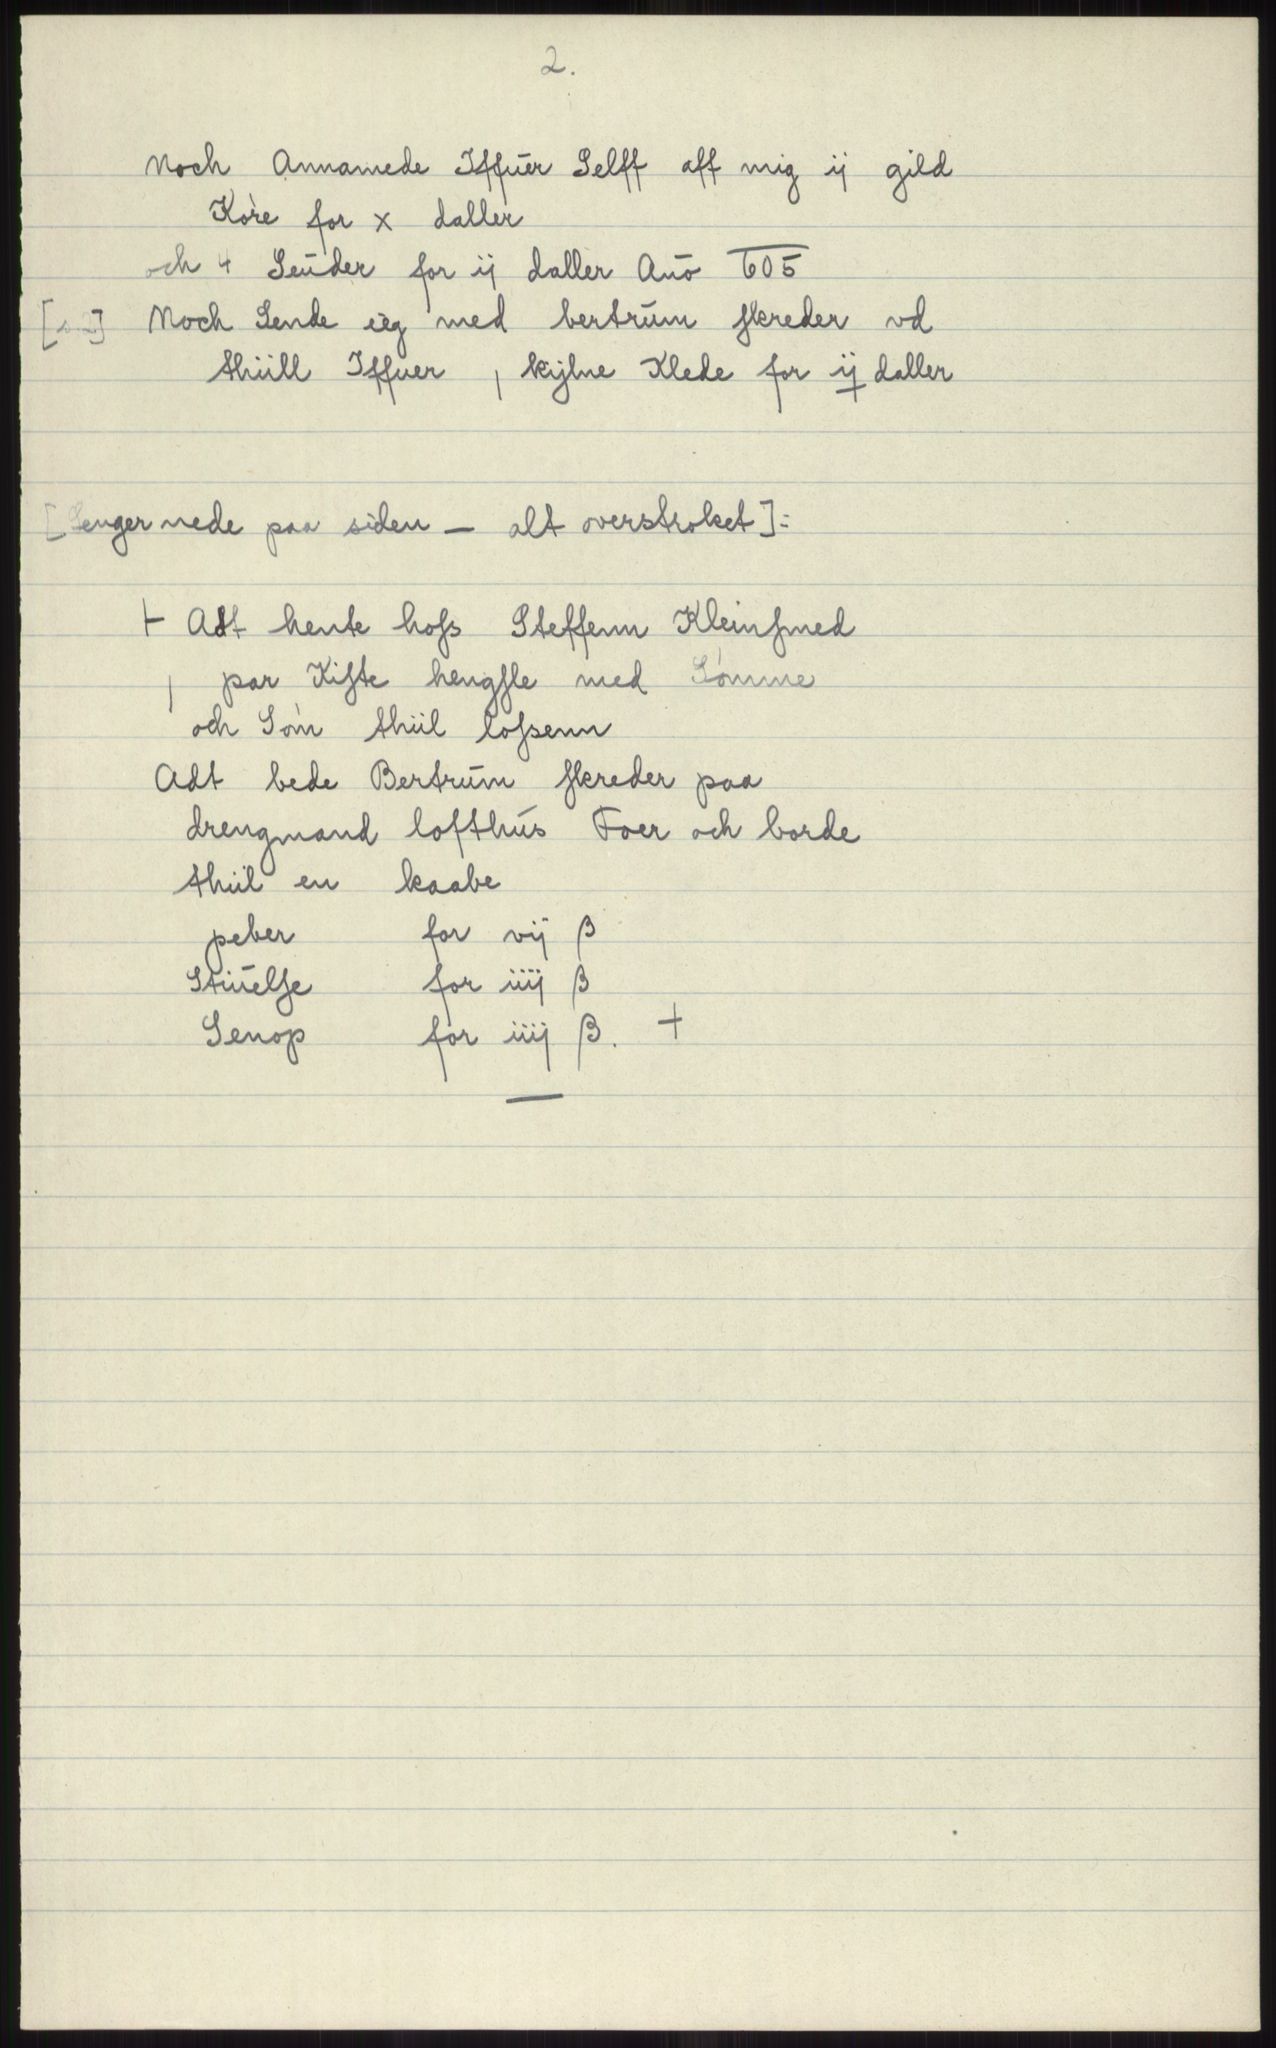 2.
Noch Annamede Iffuer Selff aff mig ij gild
Køre for x daller
och 4 Seuder for ij daller Año 605
Noch Sende ieg med bertrum skreder vd
thiill Iffuer, kijlne Klede for ij daller
[Lenger nede paa siden — alt overstrøket]:
+ Adt hente hoss Steffenn Kleinsmed
, par Kiste hengsle med Sømme
och Søm thiil lossenn
Adt bede Bertrum skreder paa
drengmand lofthus Foer och borde
thiil en kaabe
peber for vij β
Stiuelse for iiij β
Senop for iiij β. +